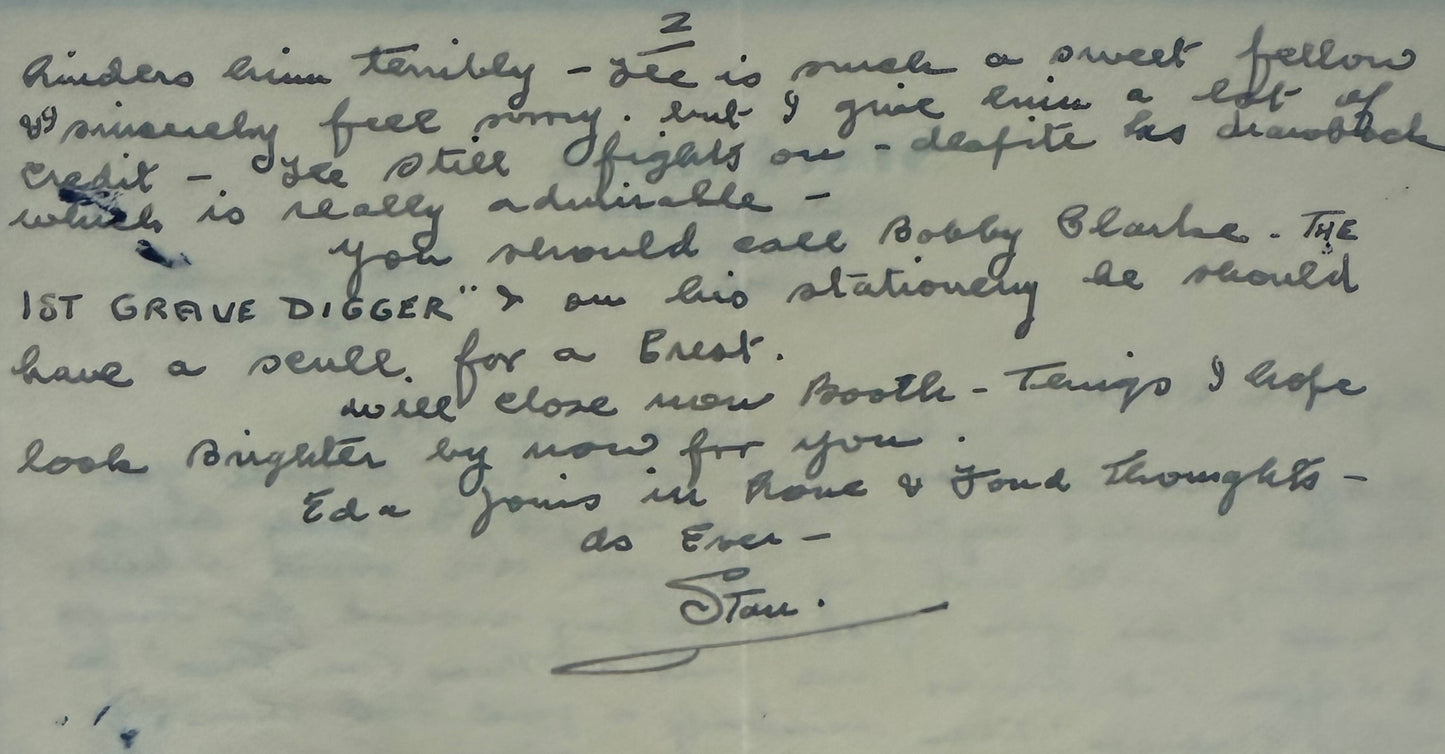 2
hinders him terribly - He is such a sweet fellow
& I sincerely feel sorry. but I give him a lot of
credit - He still fights on - despite his drawback
which is really admirable -
You should call Bobby Clarke - THE
1ST GRAVE DIGGER" & on his stationery he should
have a scull for a Crest.
Will close now Booth - Things I hope
look Brighter by now for you.
Eda joins in Love & Fond Thoughts -
As Ever -
Stan.